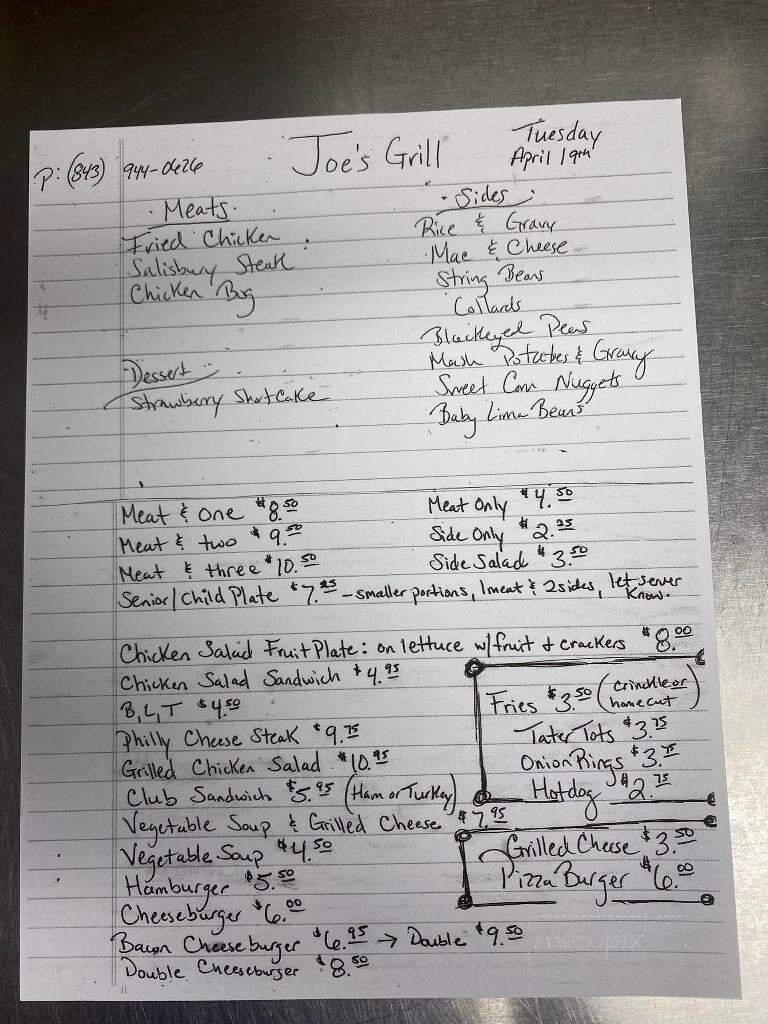 P: (843) 944-0626 Joe's Grill Tuesday
April 19th
· Meats ·
Fried Chicken
Salisbury Steak
Chicken Bog
Dessert
Strawberry Shortcake
· Sides ·
Rice & Gravy
Mac & Cheese
String Beans
Collards
Blackeyed Peas
Mash Potatoes & Gravy
Sweet Corn Nuggets
Baby Lima Beans
Meat & one $8.50 Meat Only $4.50
Meat & two $9.50 Side Only $2.25
Meat & three $10.50 Side Salad $3.50
Senior/Child Plate $7.25 - smaller portions, 1 meat & 2 sides, let server
know.
Chicken Salad Fruit Plate: on lettuce w/fruit & crackers $8.00
Chicken Salad Sandwich $4.95
B, L, T $4.50
Philly Cheese Steak $9.75
Grilled Chicken Salad $10.95
Club Sandwich $5.95 (Ham or Turkey)
Vegetable Soup & Grilled Cheese $7.95
Vegetable Soup $4.50
Hamburger $5.50
Cheeseburger $6.00
Bacon Cheeseburger $6.95 → Double $9.50
Double Cheeseburger $8.50
Fries $3.50 (crinkle or
homecut)
Tater Tots $3.75
Onion Rings $3.75
Hotdog $2.75
Grilled Cheese $3.50
Pizza Burger $6.00